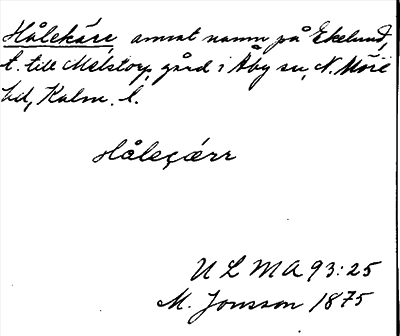 Hålekärr annat namn på Ekelund,
t. till Målstorp, gård i Åby sn, N. Möre
hd, Kalm. l.
Håleçárr
ULMA 93:25
M. Jonsson 1875